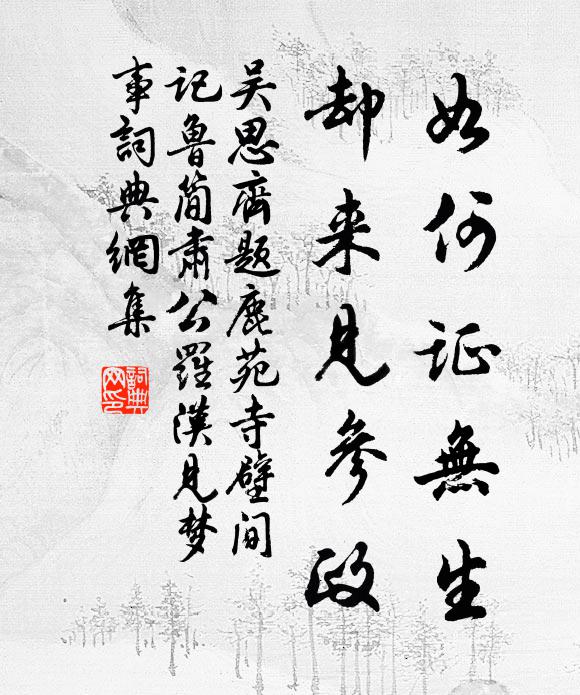 如何证無生
却来见參政
吴思齊题鹿苑寺壁间
记鲁简肃公羅漢见梦
事詞典網集
詞典
网印